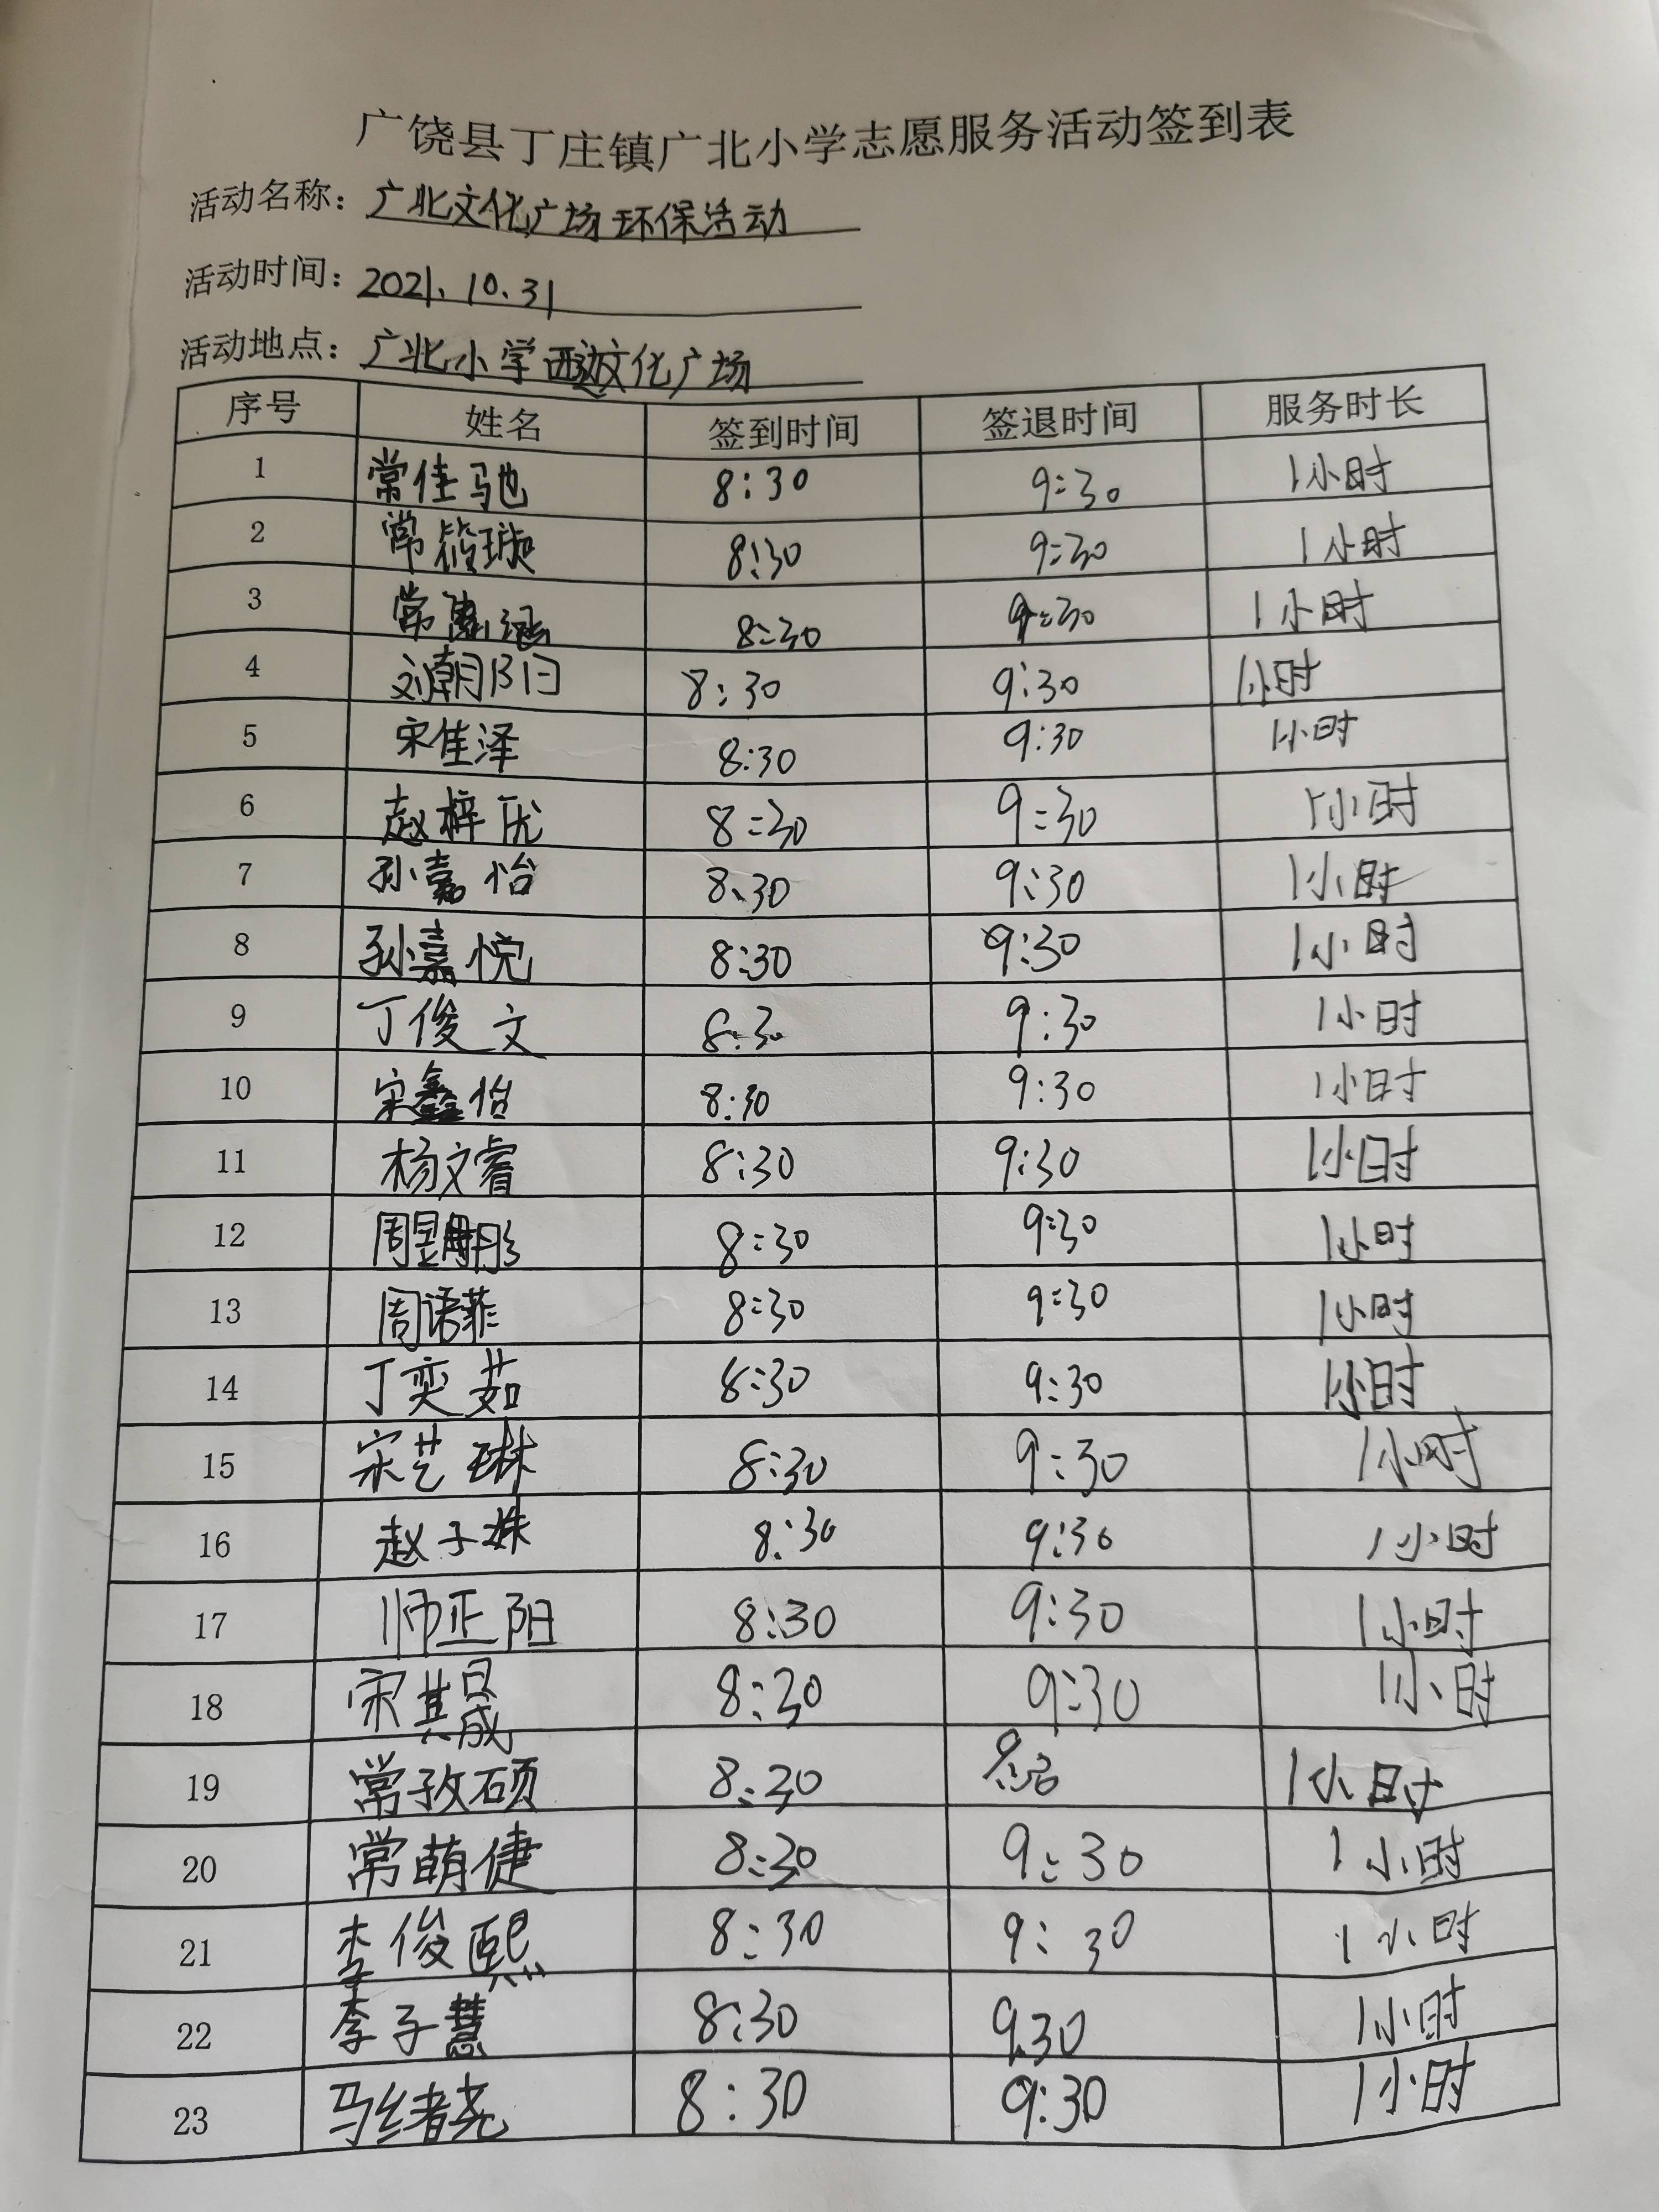 广饶县丁庄镇广北小学志愿服务活动签到表
活动名称：广北文化广场环保活动
活动时间：2021、10、31
活动地点：广北小学西边文化广场
序号 姓名 签到时间 签退时间 服务时长
1 常佳驰 8:30 9:30 1小时
2 常筱璇 8:30 9:30 1小时
3 常惠涵 8:30 9:30 1小时
4 刘朝阳 8:30 9:30 1小时
5 宋佳泽 8:30 9:30 1小时
6 赵梓 8:30 9:30 1小时
7 孙嘉怡 8:30 9:30 1小时
8 孙嘉悦 8:30 9:30 1小时
9 丁俊文 8:30 9:30 1小时
10 宋鑫怡 8:30 9:30 1小时
11 杨文睿 8:30 9:30 1小时
12 周昱彤 8:30 9:30 1小时
13 周诺菲 8:30 9:30 1小时
14 丁奕茹 8:30 9:30 1小时
15 宋艺琳 8:30 9:30 1小时
16 赵子姝 8:30 9:30 1小时
17 师正阳 8:30 9:30 1小时
18 宋其晟 8:30 9:30 1小时
19 常孜硕 8:30 9:30 1小时
20 常萌倢 8:30 9:30 1小时
21 李俊熙 8:30 9:30 1小时
22 李子慧 8:30 9.30 1小时
23 马绪尧 8:30 9:30 1小时